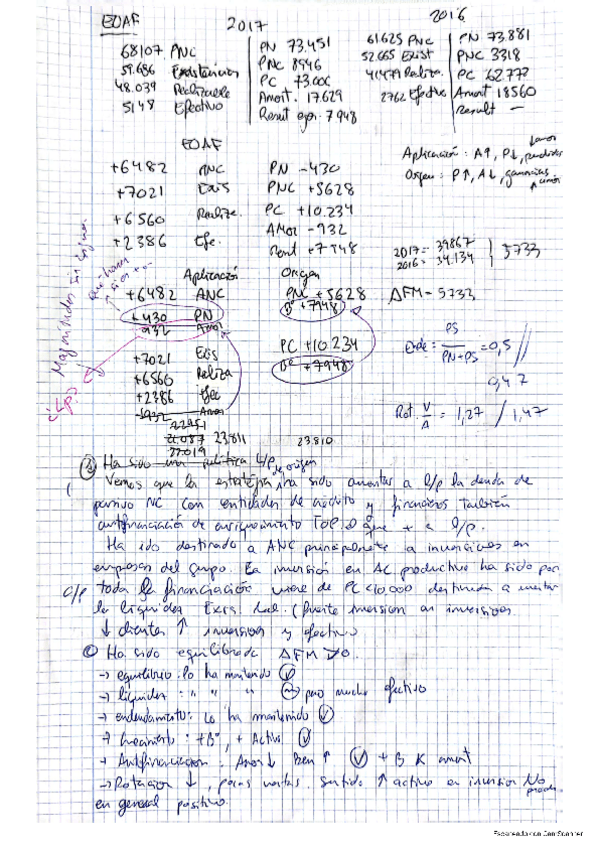 EOAF 2017 2016
68107 PNC PN 73.451 61.625 PNC PN 73.881
59.686 Existencias PNC 8946 52.665 Exist PNC 3318
48.039 Realizable PC 73.006 41479 Realiza. PC 62.772
5148 Efectivo Amort. 17.629 2762 Efectivo Amort 18560
Result ejer. 7948 result -
EOAF
Aplicación: A↑, P↓, perdidas
Origen: P↑, A↓, ganancias
+6482 ANC PN -430
+7021 Exis PNC +5628
+6560 Realiza. PC +10.234
+2386 Efe. Amor -932
Rdnt +7948
2017= 39867
2016= 34.134
5733
Aplicación Origen
+6482 ANC PNC +5628 ΔFM = 5733
+430 PN Bº +7948
932 Amor
+7021 Exis PC +10234
+6560 Realiza Bº +7948
+2386 Efec
932 Amor
Ende: PS / PN+PS = 0,5 // 0,47
Rot. V/A = 1,27 / 1,47
22451
21087 23.811 23.810
22019
Ha sido una política L/p de origen
Vemos que la estratégia ha sido aumentar a l/p la deuda de
pasivo NC con entidades de crédito y financieros también
autofinanciación de enriquecimiento
Ha ido destinado a ANC principalmente a inversiones en
empresas del grupo. La inversión en AC productivo ha sido por
C/p toda la financiación viene de PC <10.000 destinada a
la liquidez Exis (fuerte inversion en inversiones
↓ clientes ↑ inversion y efectivo
Ha sido equilibrada ΔFM >0
→ equilibrio: lo ha mantenido
→ liquidez: " " " pero mucho efectivo
→ endeudamiento: Lo ha mantenido
→ Crecimiento: +Bº, + Activo
→ Autofinanciacion: Amor ↓ Ben ↑ + B K amort
→ Rotacion ↓, pocas ventas. Sentido ↑ activo en inversion No
en general positivo.
Escaneado con CamScanner